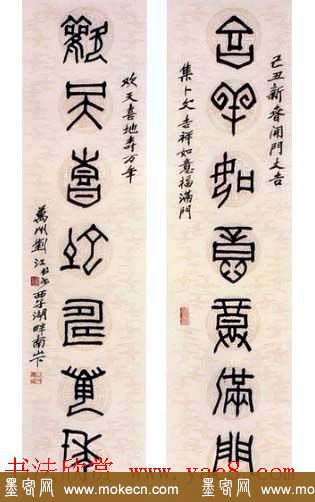 己丑新春開門大吉
吉羊如意福滿門
集卜文吉祥如意福滿門
欢天喜地寿万年
歡天喜地壽萬年
萬州劉江 西子湖畔南山下
书法欣赏 www.yac8.com
墨客网 www.mokecn.com
墨客网 www.mokecn.com